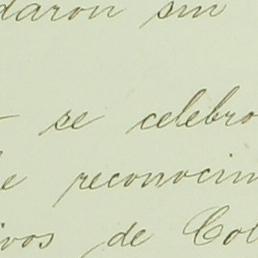 daron sin
se celebro
e reconocim
ivos de Col